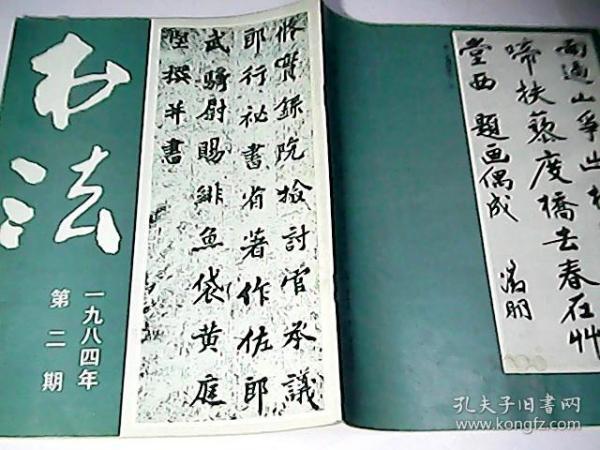 书法
一九八四年
第二期
修實録院檢討官承議
郎行祕書省著作佐郎
武騎尉賜緋魚袋黄庭
堅撰并書
雨過山爭出
啼扶藜度橋去春在艸
堂西 題画偶成
孔夫子旧书网
www.kongfz.com